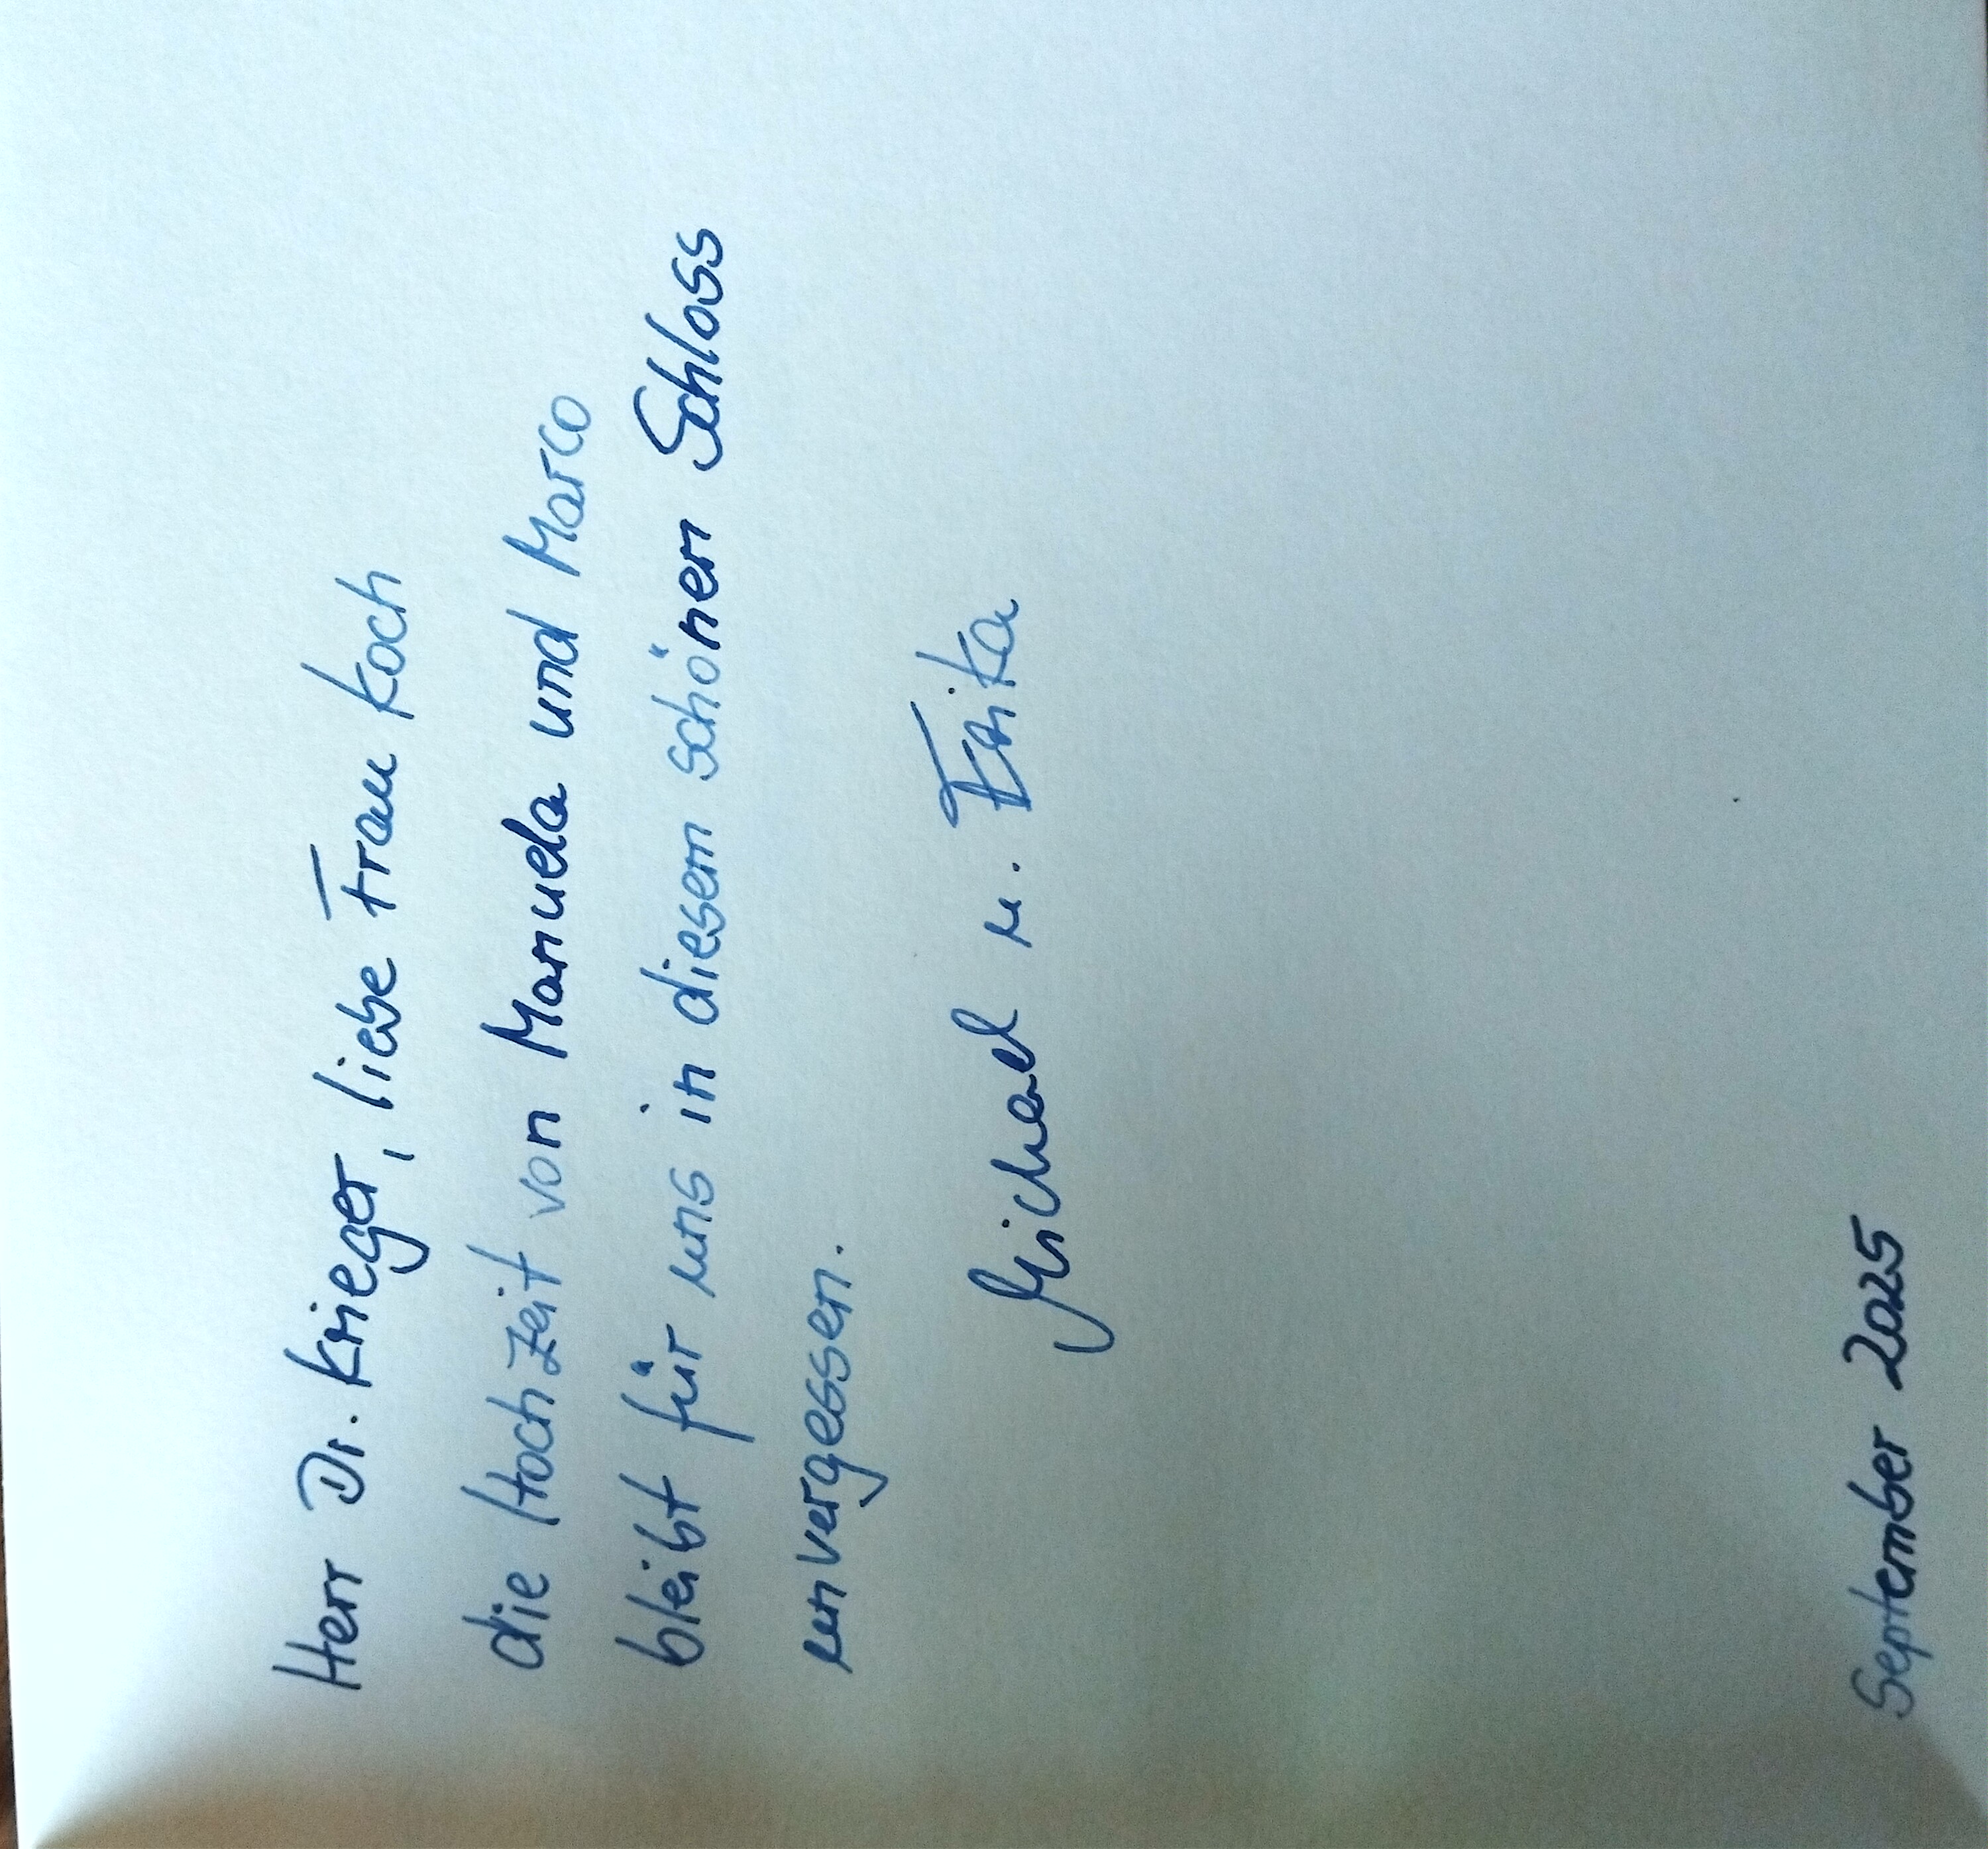 Herr Dr. Krieger, liebe Frau Koch
die Hochzeit von Manuela und Marco
bleibt für uns in diesem schönen Schloss
unvergessen.
Michael u. Erika
September 2025